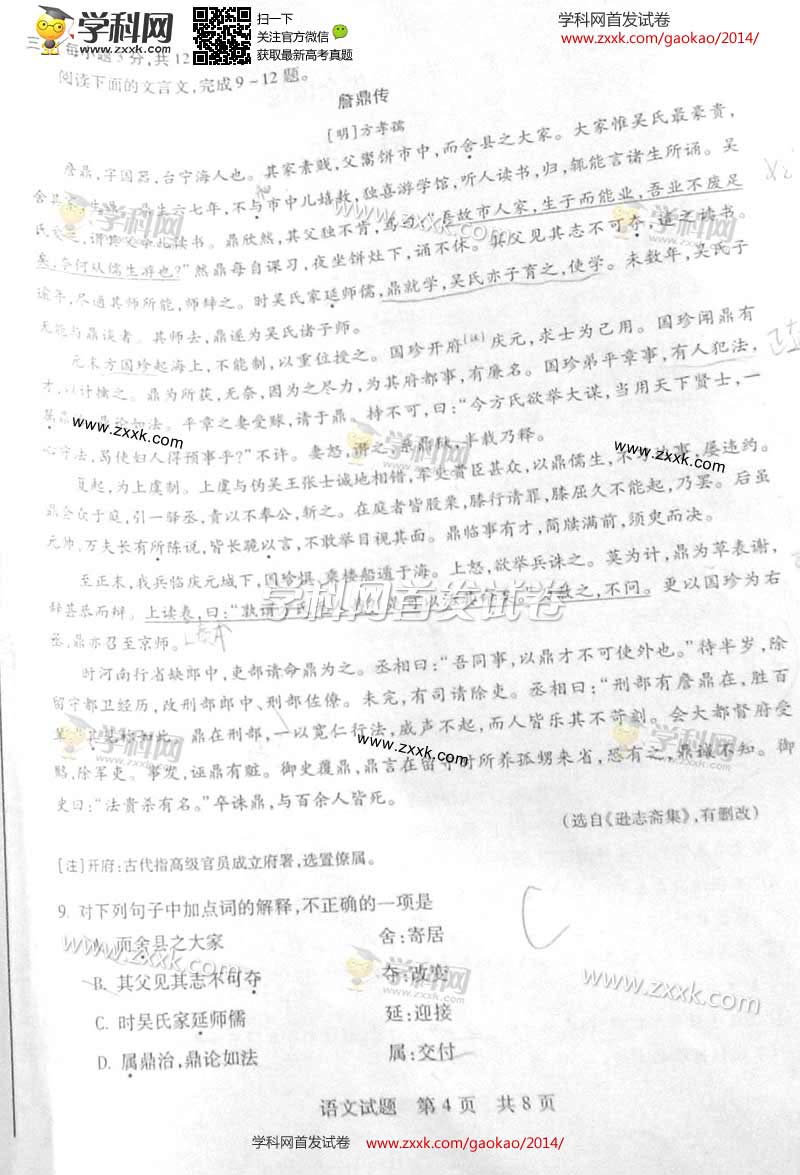 学科网
www.zxxk.com
扫一下
关注官方微信
获取最新高考真题
学科网首发试卷
www.zxxk.com/gaokao/2014/
三、每小题3分,共12
阅读下面的文言文,完成9~12题。
詹鼎传
[明]方孝孺
詹鼎,字国器,台宁海人也。其家素贱,父鬻饼市中,而舍县之大家。大家惟吴氏最豪贵,
舍其 生六七年,不与市中儿嬉敖,独喜游学馆,听人读书,归,辄能言诸生所诵。吴
氏 谓其父 读书。鼎欣然,其父独不肯,骂曰:“吾故市人家,生子而能业,吾业不废足
矣,奈何从儒生游也?”然鼎每自课习,夜坐饼灶下,诵不休。其父见其志不可夺,遣之读书。
逾年,尽通其师所能,师辞之。时吴氏家延师儒,鼎就学,吴氏亦子育之,使学。未数年,吴氏子
无能与鼎谈者。其师去,鼎遂为吴氏诸子师。
元末方国珍起海上,不能制,以重位授之。国珍开府[注]庆元,求士为己用。国珍闻鼎有
才,以计擒之。鼎为所获,无奈,因为之尽力,为其府都事,有廉名。国珍弟平章事,有人犯法,
属鼎 鼎论如法。平章之妻受赇,请于鼎,持不可,曰:“今方氏欲举大谋,当用天下贤士,一
心守法,曷使妇人得预事乎?”不许。妻怒,谮之,系鼎狱,半载乃释。
复起,为上虞制。上虞与伪吴王张士诚地相错,军吏贵臣甚众,以鼎儒生, 事,屡违约。
鼎会众于庭,引一驿丞,责以不奉公,斩之。在庭者皆股栗,膝行请罪,膝屈久不能起,乃罢。后虽
元帅、万夫长有所陈说,皆长跪以言,不敢举目视其面。鼎临事有才,简牍满前,须臾而决。
至正末,我兵临庆元城下,国珍惧,乘楼船遁于海。上怒,欲举兵诛之。莫为计,鼎为草表谢,
辞甚恭而辩。上读表,曰:“孰谓方氏 之,不问。更以国珍为右
丞,鼎亦召至京师。
时河南行省缺郎中,吏部请命鼎为之。丞相曰:“吾同事,以鼎才不可使外也。”待半岁,除
留守都卫经历,改刑部郎中、刑部佐僚。未完,有司请除吏。丞相曰:“刑部有詹鼎在,胜百
如此。鼎在刑部,一以宽仁行法,威声不起,而人皆乐其不苛刻。会大都督府受
赇,除军吏。事发,诬鼎有赃。御史覆鼎,鼎言在留守时所养孤甥来省,恐有之,鼎诚不知。御
史曰:“法贵杀有名。”卒诛鼎,与百余人皆死。
(选自《逊志斋集》,有删改)
[注]开府:古代指高级官员成立府署,选置僚属。
9. 对下列句子中加点词的解释,不正确的一项是
C
A. 而舍县之大家 舍:寄居
B. 其父见其志不可夺 夺:改变
C. 时吴氏家延师儒 延:迎接
D. 属鼎治,鼎论如法 属:交付
语文试题 第4页 共8页
学科网首发试卷 www.zxxk.com/gaokao/2014/